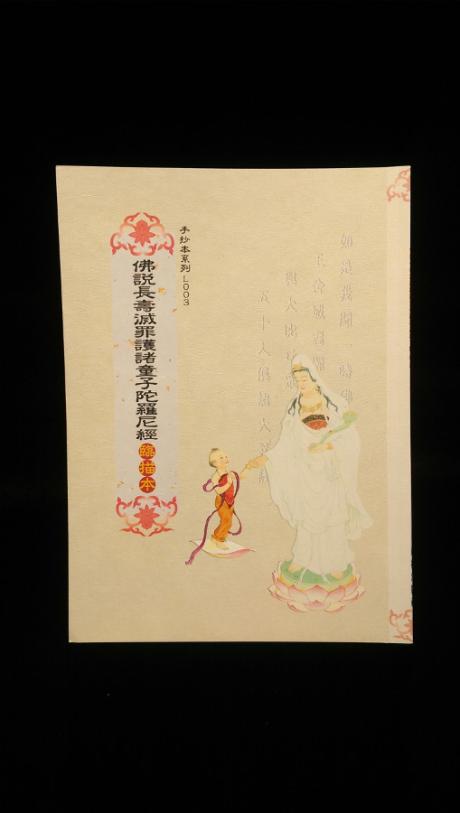 手抄本系列L003
佛說長壽滅罪護諸童子陀羅尼經臨描本
如是我聞一時
王舍城耆闍
與大比丘眾
五十人俱